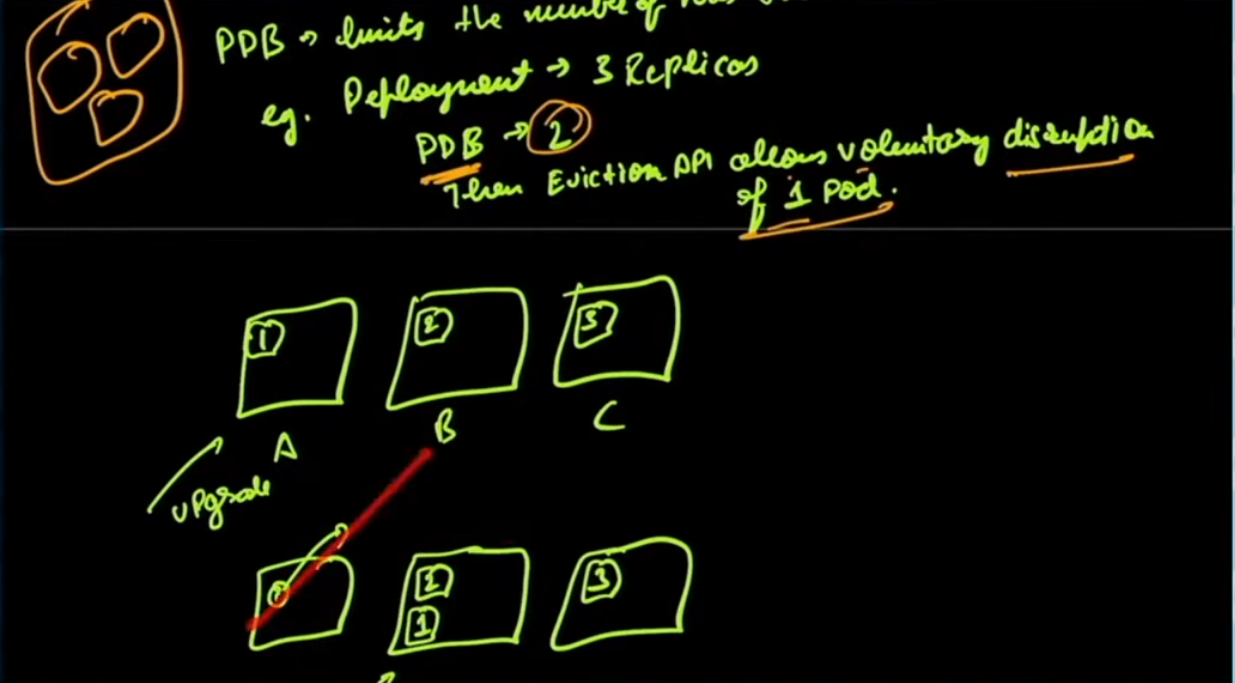 PDB → limits the number of
eg. Deployment → 3 Replicas
PDB → 2
Then Eviction API allows voluntary disruption
of 1 pod.
1 2 3
A B C
upgrade
1 3
1